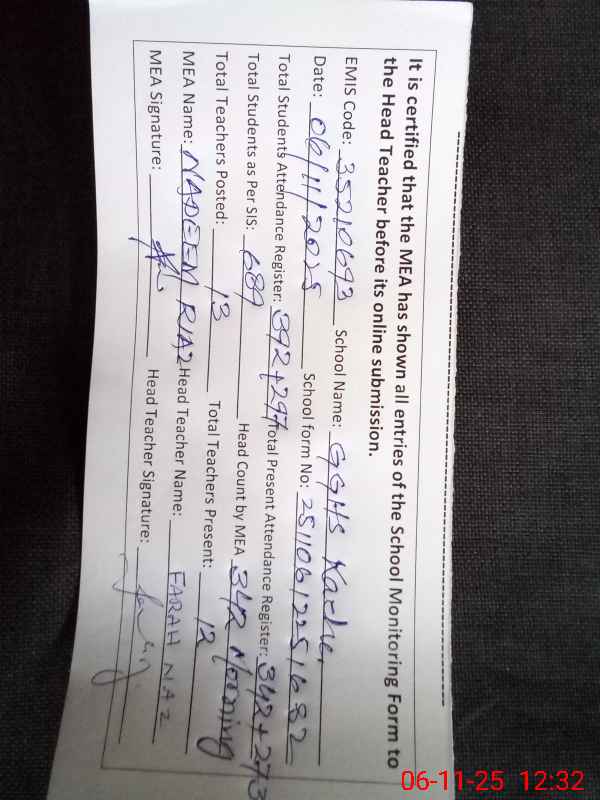 It is certified that the MEA has shown all entries of the School Monitoring Form to
the Head Teacher before its online submission.
EMIS Code: 35210693 School Name: GGHS Kacha
Date: 06/11/2025 School form No: 25110612251682
Total Students Attendance Register: 392+297 Total Present Attendance Register: 342+273
Total Students as Per SIS: 689 Head Count by MEA 342 Morning
Total Teachers Posted: 13 Total Teachers Present: 12
MEA Name: NADEEM RIAZ Head Teacher Name: FARAH NAZ
MEA Signature: Head Teacher Signature:
06-11-25 12:32